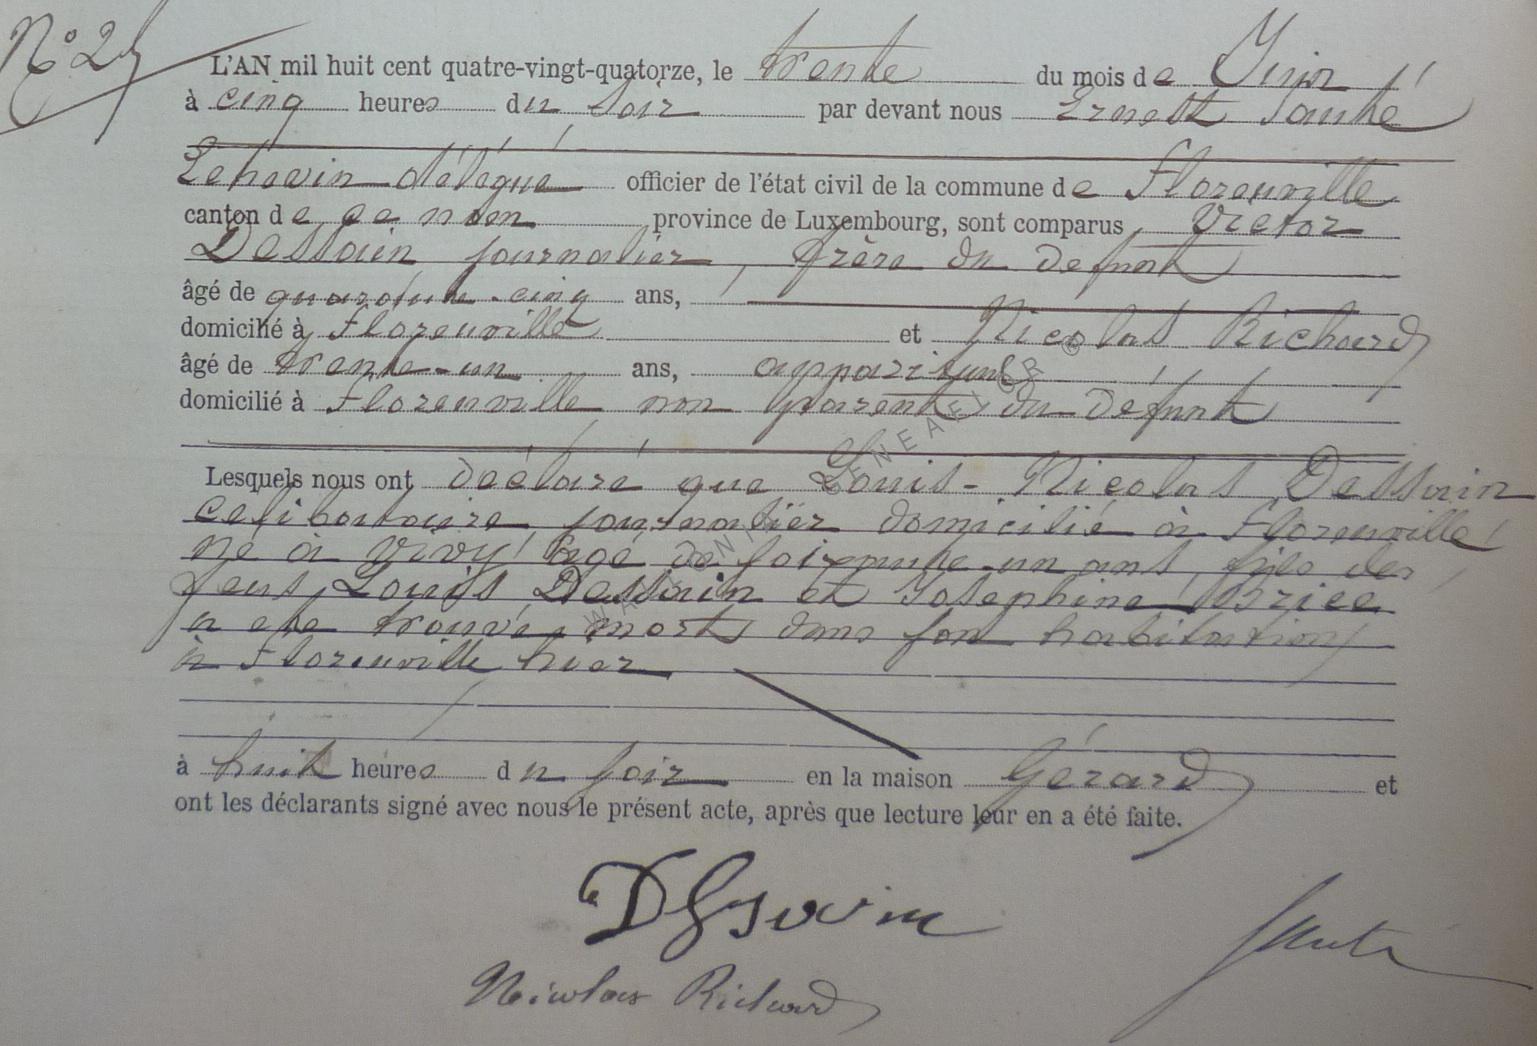 N° 25
L'AN mil huit cent quatre-vingt-quatorze, le trente du mois de Juin
à cinq heures du soir par devant nous Ernest Santé
Echevin délégué officier de l'état civil de la commune de Florenville
canton de ce nom province de Luxembourg, sont comparus Victor
Dessoin journalier, frère du defunt
âgé de quarante-cinq ans,
domicilié à Florenville et Nicolas Richard
âgé de trente-un ans, appariteur
domicilié à Florenville non parent du defunt
Lesquels nous ont déclaré que Louis-Nicolas Dessoin
celibataire journalier domicilié à Florenville
né à Vivy agé de soixante-un ans, fils des
feus Louis Dessoin et Josephine Bricé
a été trouvé mort dans son habitation
à Florenville hier
à huit heures du soir en la maison Gérard et
ont les déclarants signé avec nous le présent acte, après que lecture leur en a été faite.
Dessoin
Santé
Nicolas Richard